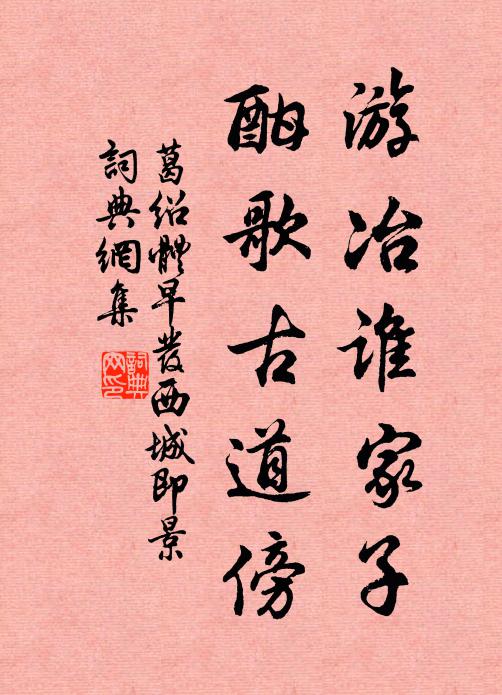 游冶谁家子
酣歌古道傍
葛绍體早發西城即景
詞典網集
詞典
网印